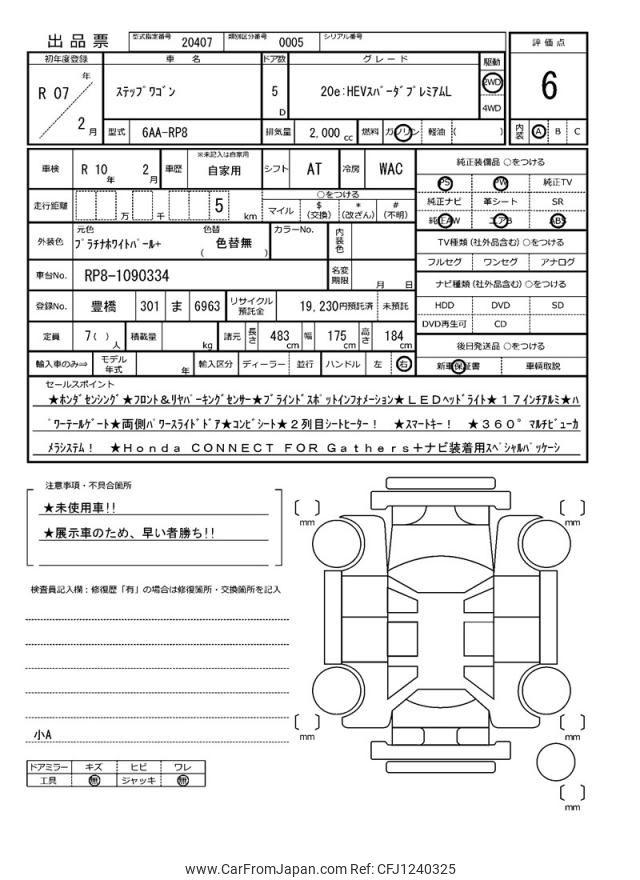 出品票 型式指定番号 20407 類別区分番号 0005 シリアル番号
評価点
6
内装 A B C
初年度登録 車名 ドア数 グレード 駆動
R 07 年 2 月 ステップワゴン 5 D 20e:HEVスパーダプレミアムL 2WD 4WD
型式 6AA-RP8 排気量 2,000 cc 燃料 ガソリン 軽油 ( )
車検 R 10 年 2 月 車歴 ※未記入は自家用 自家用 シフト AT 冷房 WAC
純正装備品 ○をつける
PS PW 純正TV
純正ナビ 革シート SR
純正AW エアB ABS
走行距離 万 千 5 km ○をつける
マイル $(交換) *(改ざん) #(不明)
外装色 元色 プラチナホワイトパール+ 色替 ( 色替無 ) カラーNo. 内装色
TV種類(社外品含む) ○をつける
フルセグ ワンセグ アナログ
車台No. RP8-1090334 名変期限 月 日
ナビ種類(社外品含む) ○をつける
HDD DVD SD
DVD再生可 CD
登録No. 豊橋 301 ま 6963 リサイクル預託金 19,230円預託済 未預託
定員 7( ) 人 積載量 kg 諸元 長さ 483 cm 幅 175 cm 高さ 184 cm
後日発送品 ○をつける
新車保証書 車輌取説
輸入車のみ⇒ モデル年式 年 輸入区分 ディーラー 並行 ハンドル 左 右
セールスポイント
★ホンダセンシング★フロント&リヤパーキングセンサー★ブラインドスポットインフォメーション★LEDヘッドライト★17インチアルミ★パ
ワーテールゲート★両側パワースライドドア★コンビシート★2列目シートヒーター! ★スマートキー! ★360°マルチビューカ
メラシステム! ★Honda CONNECT FOR Gathers+ナビ装着用スペシャルパッケージ
注意事項・不具合箇所
★未使用車!!
★展示車のため、早い者勝ち!!
検査員記入欄:修復歴「有」の場合は修復箇所・交換箇所を記入
小A
ドアミラー キズ ヒビ ワレ
工具 無 ジャッキ 無
mm
mm
mm
mm
mm
www.CarFromJapan.com Ref: CFJ1240325